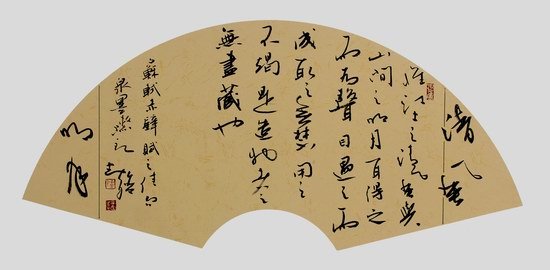 清风
惟江上之清风與
山间之明月耳得之
而为聲目遇之而
成取之無禁用之
不竭是造物者之
無盡藏也
蘇軾赤壁賦之佳句
明月